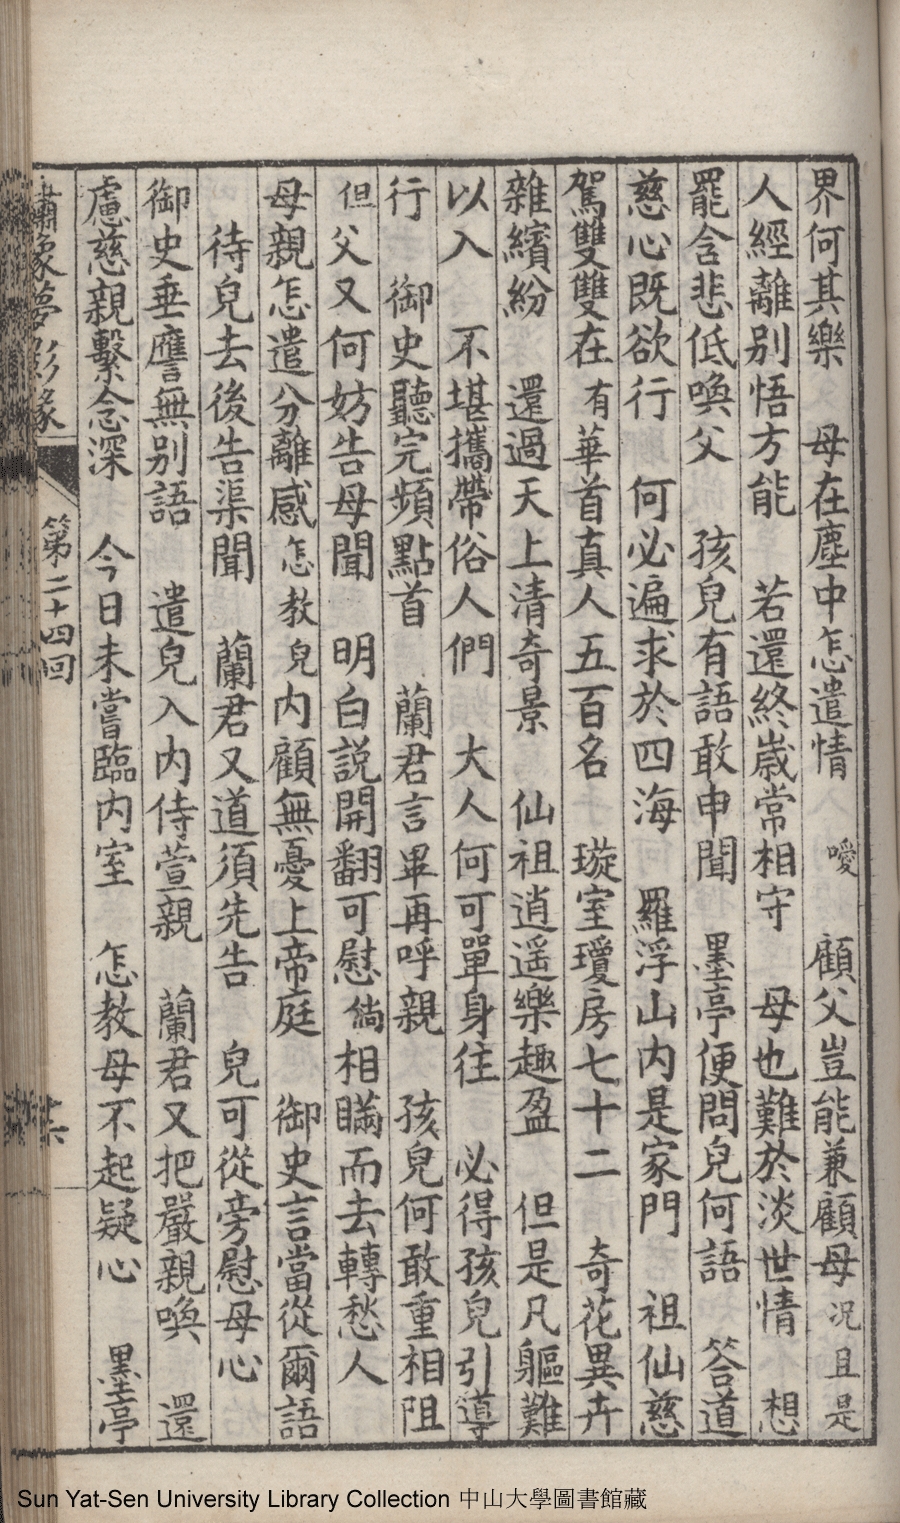 界何其樂　母在塵中怎遣情　噯　顧父豈能兼顧母　况且是
人經離別悟方能　若還終歲常相守　母也難於淡世情　想
罷含悲低喚父　孩兒有語敢申聞　墨亭便問兒何語　答道
慈心既欲行　何必遍求於四海　羅浮山內是家門　祖仙慈
駕雙雙在　有華首真人五百名　璇室瓊房七十二　奇花異卉
雜繽紛　還過天上清奇景　仙祖逍遥樂趣盈　但是凡軀難
以入　不堪攜帶俗人們　大人何可單身往　必得孩兒引導
行　御史聽完頻點首　蘭君言畢再呼親　孩兒何敢重相阻
但父又何妨告母聞　明白説開翻可慰　倘相瞞而去轉愁人
母親怎遣分離感　怎教兒內顧無憂上帝庭　御史言當從爾語
待兒去後告渠聞　蘭君又道須先告　兒可從旁慰母心
御史垂譍無別語　遣兒入內侍萱親　蘭君又把嚴親喚　還
慮慈親繫念深　今日未嘗臨內室　怎教母不起疑心　墨亭
夢影緣
第二十四回
Sun Yat-Sen University Library Collection 中山大學圖書館藏